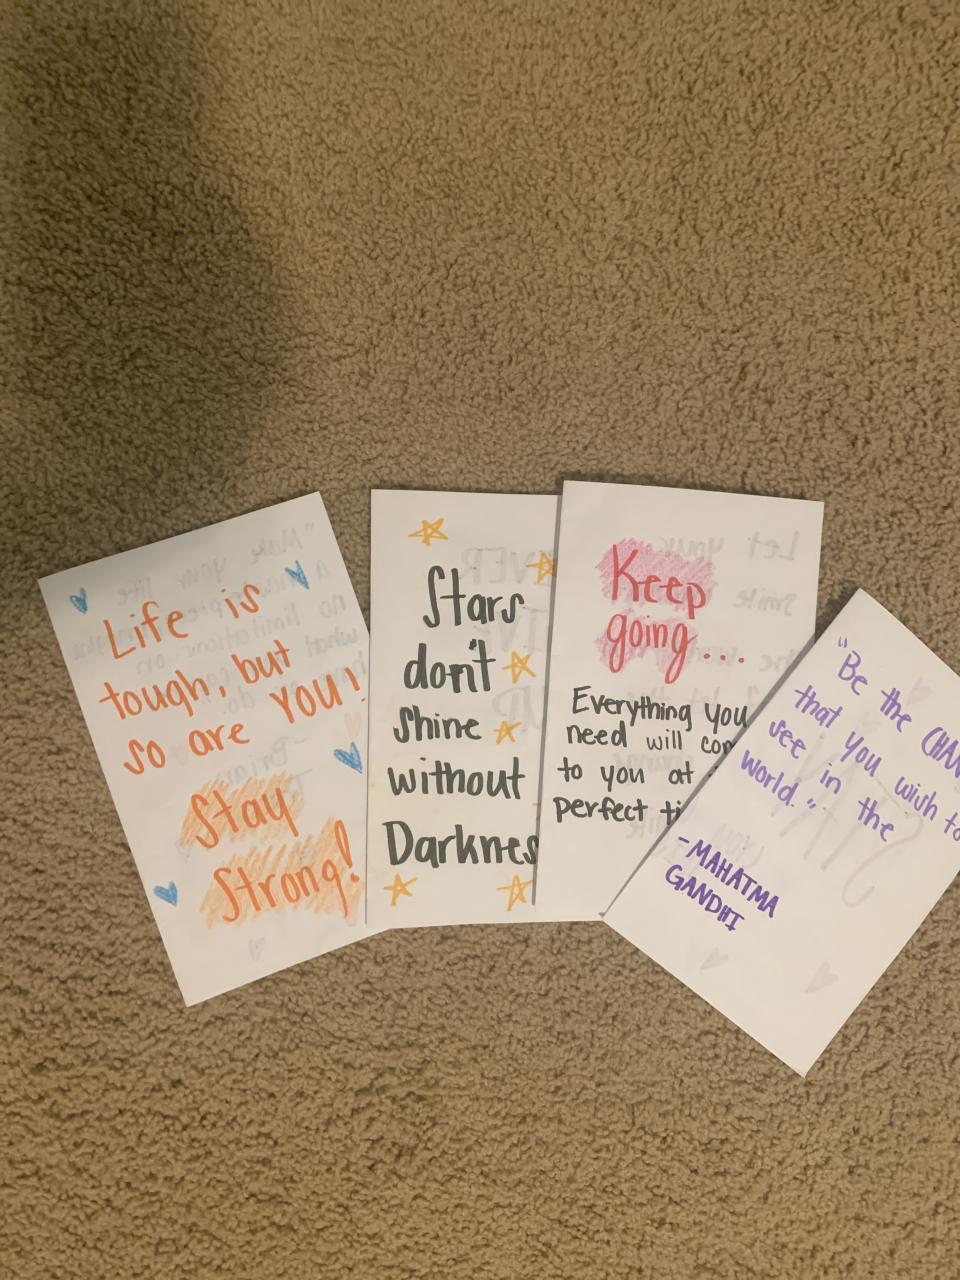 Life is
tough, but
so are YOU!
Stay
Strong!
Stars
don't
shine
without
Darknes
Keep
going...
Everything you
need will com
to you at
perfect ti
"Be the CHAN
that you wish to
see in the
world."
-MAHATMA
GANDHI
"Make your life
Let your
Smile
EVER